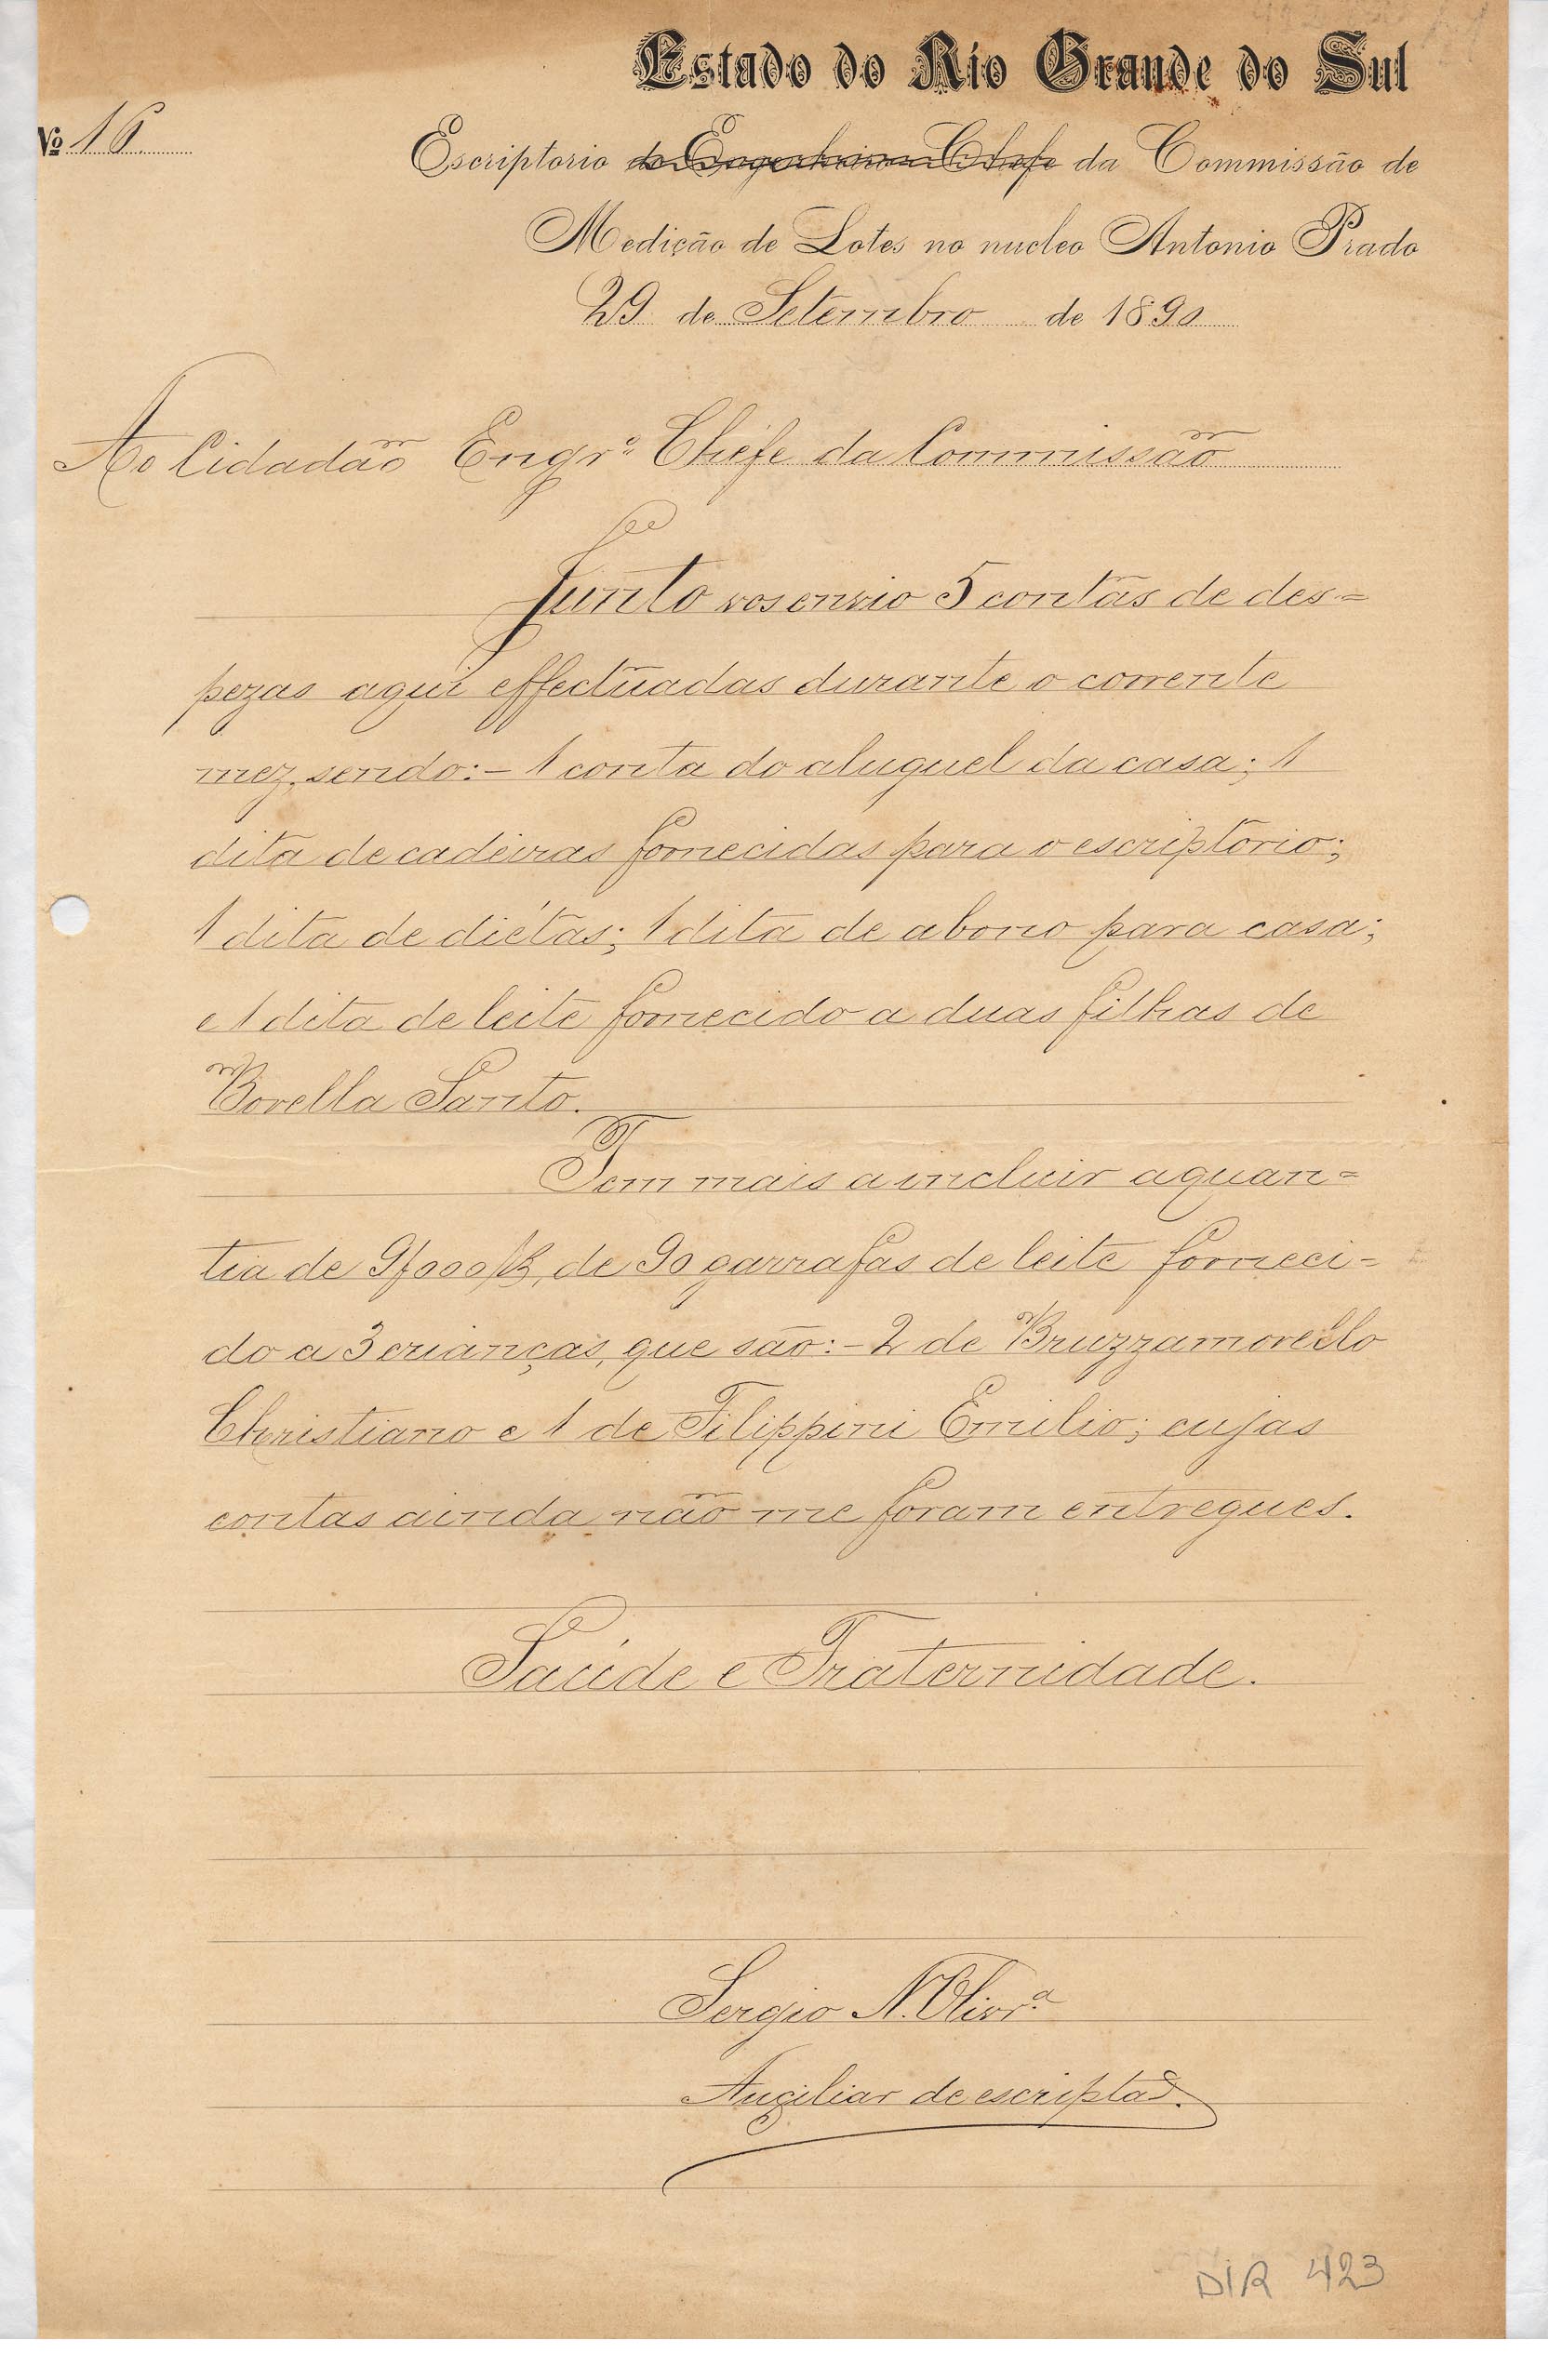 Estado do Rio Grande do Sul
Nº 16
Escriptorio do Engenheiro Chefe da Commissão de
Medição de Lotes no nucleo Antonio Prado
29 de Setembro de 1890
Ao Cidadão Engrº Chefe da Commissão
Junto vos envio 5 contas de des=
pezas aqui effectuadas durante o corrente
mez, sendo:- 1 conta do aluguel da casa; 1
dita de cadeiras fornecidas para o escriptorio;
1 dita de diétas; 1 dita de abono para casa;
e 1 dita de leite fornecido a duas filhas de
Borella Santo.
Tem mais a incluir a quan=
tia de 9$000 de 90 garrafas de leite forneci=
do a 3 crianças, que são:- 2 de Bruzzamorello
Christiano e 1 de Filippini Emilio; cujas
contas ainda não me foram entregues.
Saúde e Fraternidade.
Sergio N. Olivrª
Auxiliar de escriptaõ.
DIR 423